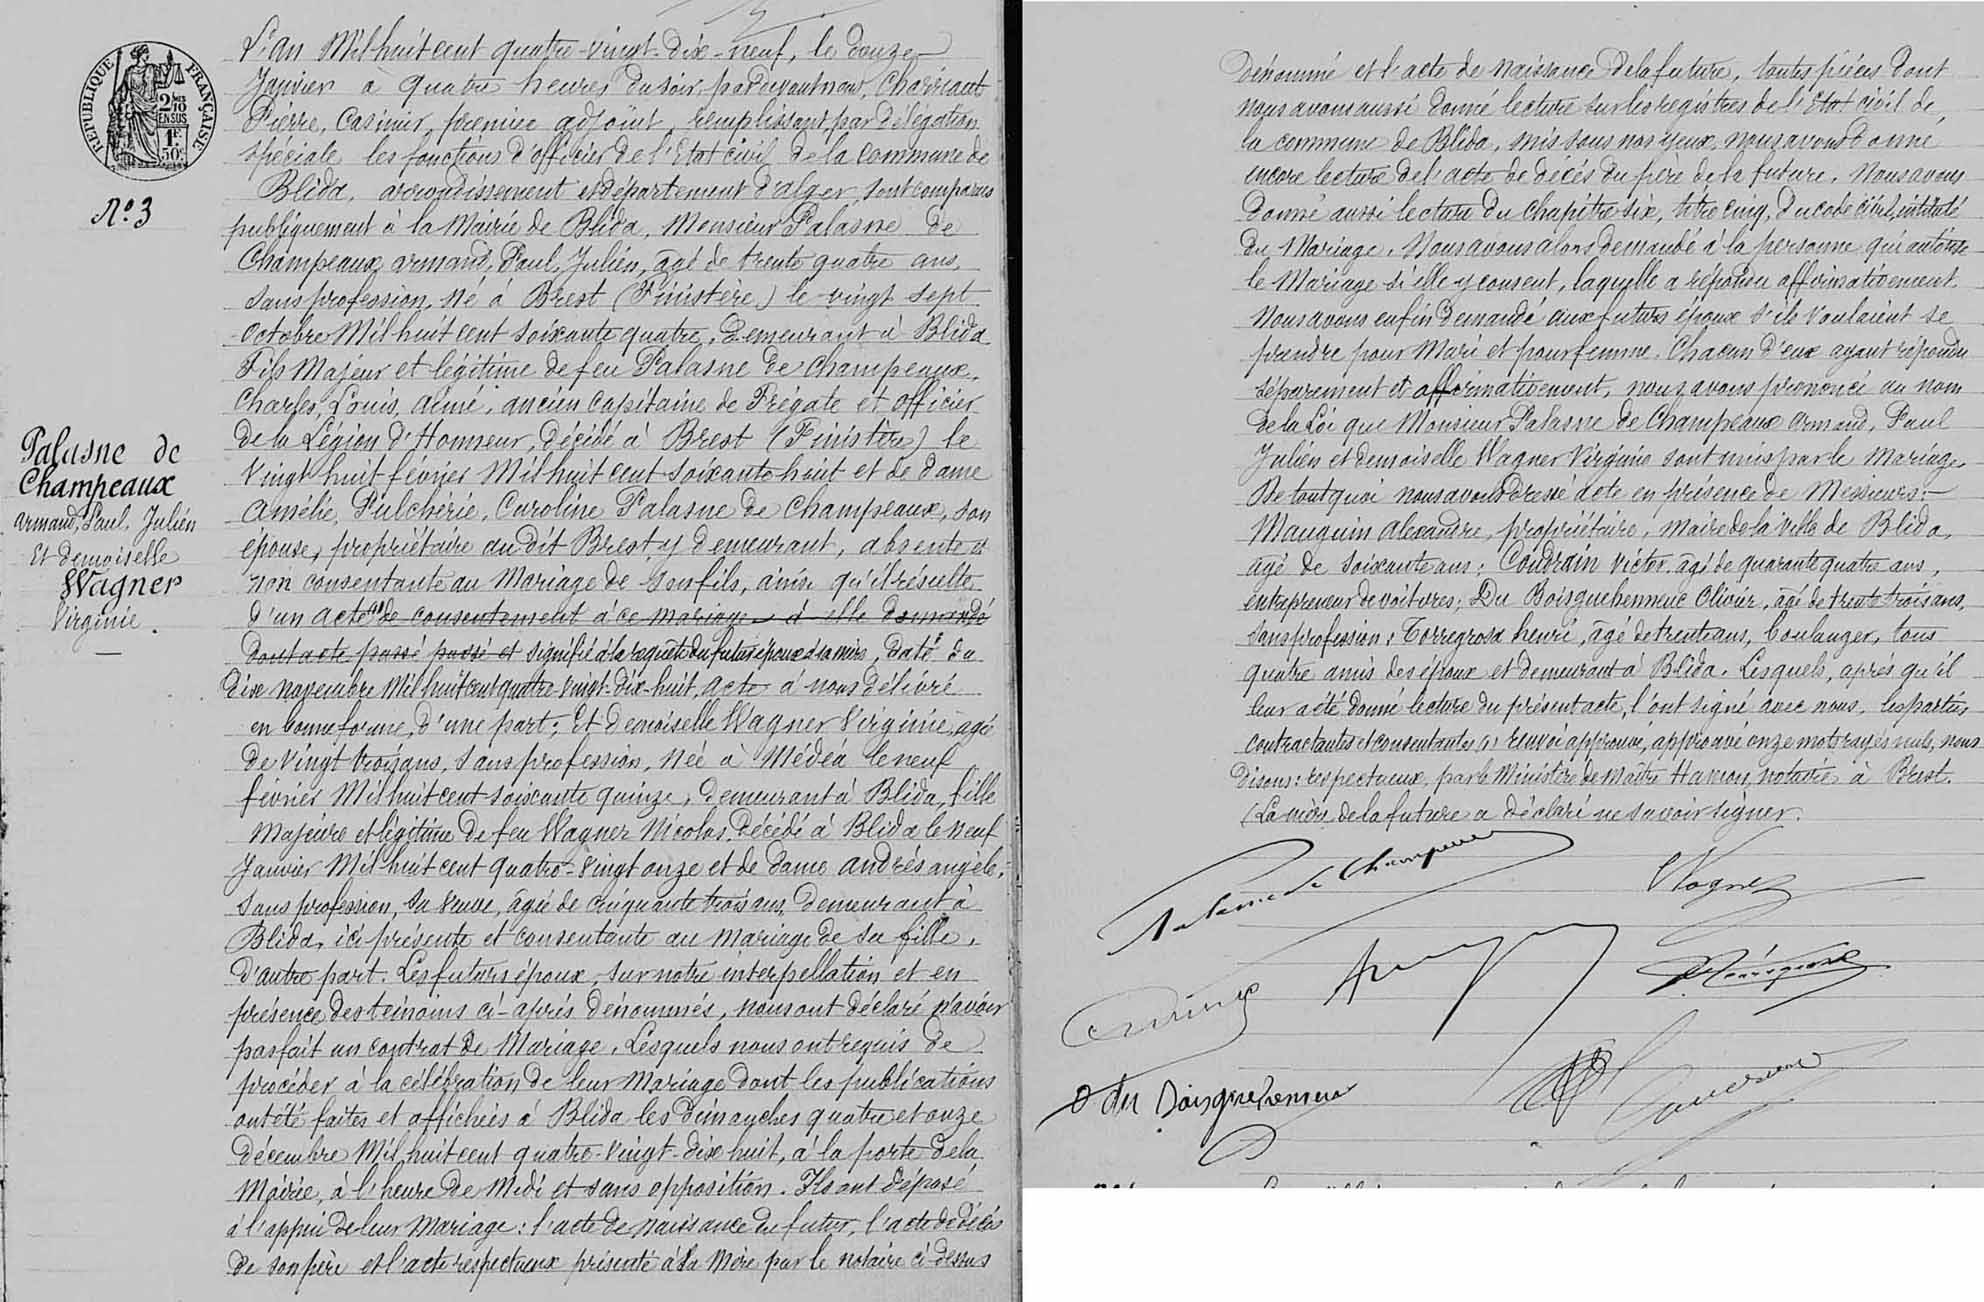 RÉPUBLIQUE FRANÇAISE
2 10
EN SUS
1F
50
N° 3
Palasne de
Champeaux
Armand, Paul, Julien
Et demoiselle
Wagner
Virginie.
L'an Mil huit cent quatre-vingt-dix-neuf, le douze
Janvier à quatre heures du soir, pardevant nous, Charriaut
Pierre, Casimir, premier adjoint, remplissant par délégation
spéciale les fonctions d'officier de l'Etat civil de la commune de
Blida, arrondissement et département d'Alger, sont comparus
publiquement à la Mairie de Blida, Monsieur Palasne de
Champeaux Armand, Paul, Julien, âgé de trente quatre ans,
sans profession, né à Brest (Finistère) le vingt sept
Octobre Mil huit cent soixante quatre, demeurant à Blida
Fils Majeur et légitime de feu Palasne de Champeaux,
Charles, Louis, Aimé, ancien capitaine de Frégate et officier
de la Légion d'Honneur, décédé à Brest (Finistère) le
vingt huit février Mil huit cent soixante huit et de dame
Amélie, Pulchérie, Caroline Palasne de Champeaux, son
épouse, propriétaire au dit Brest y demeurant, absente et
non consentante au Mariage de son fils, ainsi qu'il résulte
d'un acte (1) de consentement à ce mariage à elle demandé
dont acte passé passé et signifié à la requête du futur époux à sa mère, daté du
dix novembre Mil huit cent quatre-vingt-dix-huit, acte à nous délivré
en bonne forme, d'une part; Et demoiselle Wagner Virginie, âgé
de vingt trois ans, sans profession, née à Médéa le neuf
février Mil huit cent soixante quinze, demeurant à Blida, fille
majeure et légitime de feu Wagner Nicolas, décédé à Blida le neuf
Janvier Mil huit cent quatre-vingt onze et de dame Andrés Angèle,
sans profession, sa veuve, âgée de cinquante trois ans, demeurant à
Blida, ici présente et consentante au mariage de sa fille,
d'autre part. Les futurs époux, sur notre interpellation et en
présence des témoins ci-après dénommés, nous ont déclaré n'avoir
pas fait un contrat de Mariage. Lesquels nous ont requis de
procéder à la célébration de leur Mariage dont les publications
ont été faites et affichées à Blida les dimanches quatre et onze
décembre Mil huit cent quatre-vingt-dix huit, à la porte de la
Mairie, à l'heure de Midi et sans opposition. Ils ont déposé
à l'appui de leur mariage: l'acte de naissance du futur, l'acte de décès
de son père et l'acte respectueux présenté à sa mère par le notaire ci-dessus
Dénommé et l'acte de Naissance de la future, toutes pièces dont
nous avons aussi donné lecture sur les registres de l'Etat civil de
la commune de Blida, mis sous nos yeux, nous avons donné
encore lecture de l'acte de décès du père de la future. Nous avons
donné aussi lecture du chapitre six, titre cinq, du code civil, intitulé
du Mariage. Nous avons alors demandé à la personne qui autorise
le Mariage si elle y consent, laquelle a répondu affirmativement.
Nous avons enfin demandé aux futurs époux s'ils voulaient se
prendre pour Mari et pour femme. Chacun d'eux ayant répondu
séparément et affirmativement, nous avons prononcé au nom
de la Loi que Monsieur Palasne de Champeaux Armand, Paul
Julien et demoiselle Wagner Virginie sont unis par le mariage.
De tout quoi nous avons dressé acte en présence de Messieurs:
Mauguin Alexandre, propriétaire, Maire de la ville de Blida,
âgé de soixante ans; Coudrain Victor, âgé de quarante quatre ans,
entrepreneur de voitures; Du Boisguehenneuc Olivier, âgé de trente trois ans,
sans profession; Torregrosa Henri, âgé de trente ans, boulanger, tous
quatre amis des époux et demeurant à Blida. Lesquels, après qu'il
leur a été donné lecture du présent acte, l'ont signé avec nous, les parties
contractantes et consentantes (1) renvoi approuvé, approuvé onze mots rayés nuls, nous
disons: respectueux, par le Ministère de Maître Hamon, notaire à Brest.
(La mère de la future a déclaré ne savoir signer.
Palasne de Champeaux
Wagner
O du Boisguehenneuc